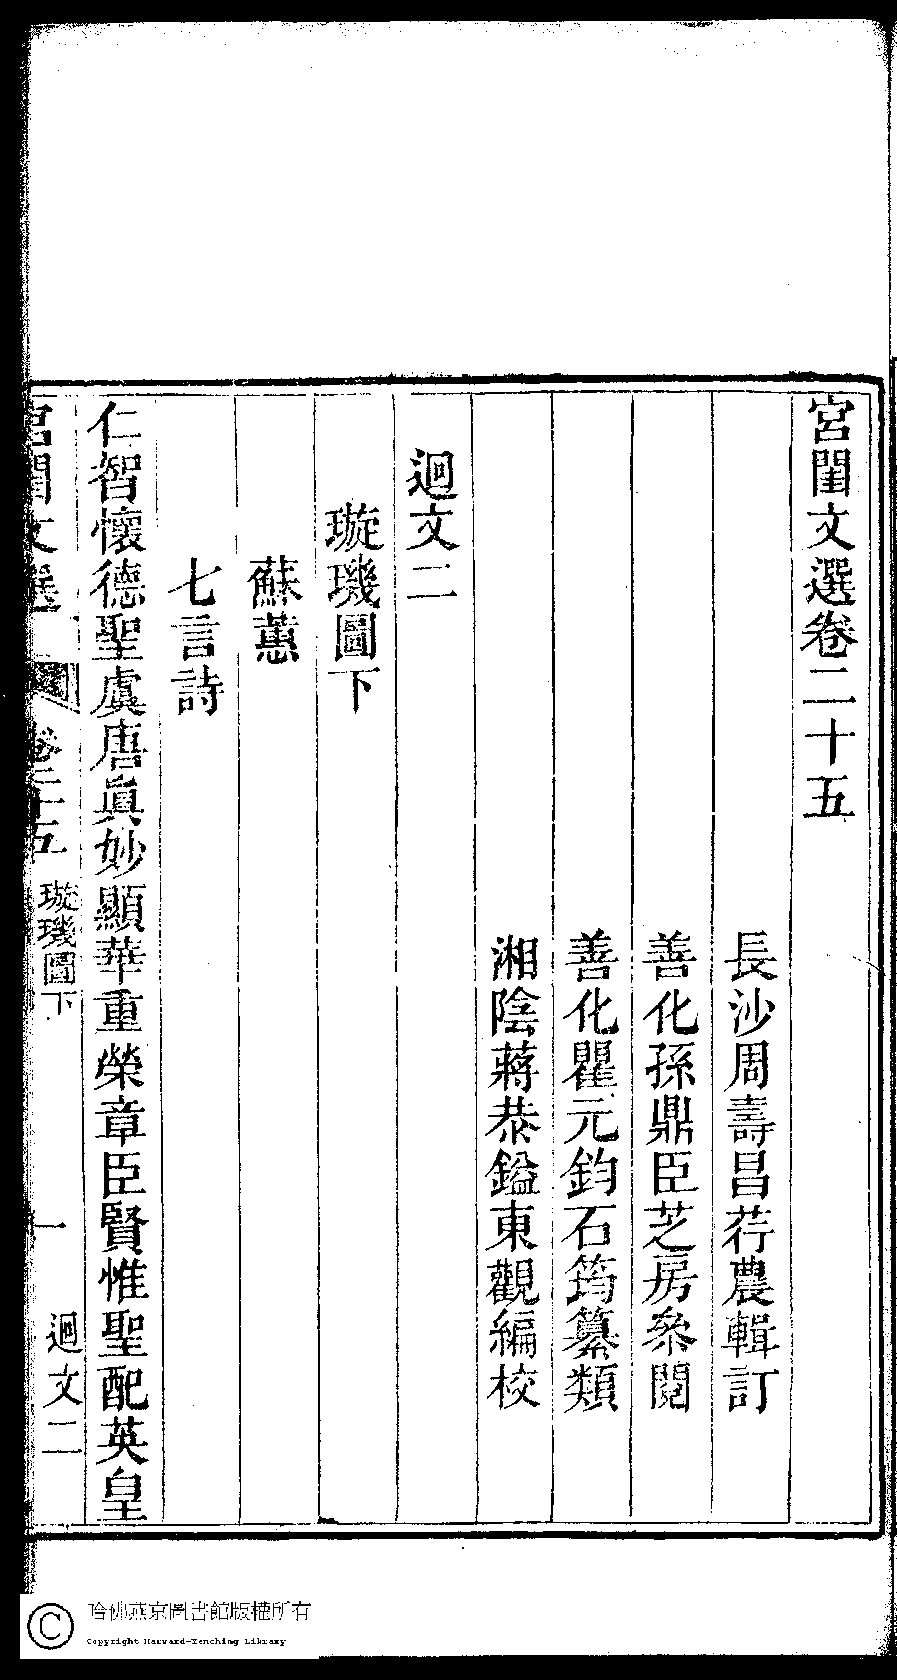 宮閨文選卷二十五
長沙周壽昌荇農輯訂
善化孫鼎臣芝房叅閱
善化瞿元鈞石筠纂類
湘陰蔣恭鎰東觀編校
迴文二
璇璣圖下
蘇蕙
七言詩
仁智懷德聖虞唐眞妙顯華重榮章臣賢惟聖配英皇
宮閨文選 卷二十五 璇璣圖下 一 迴文二
哈佛燕京圖書館版權所有
Copyright Harvard-Yenching Library